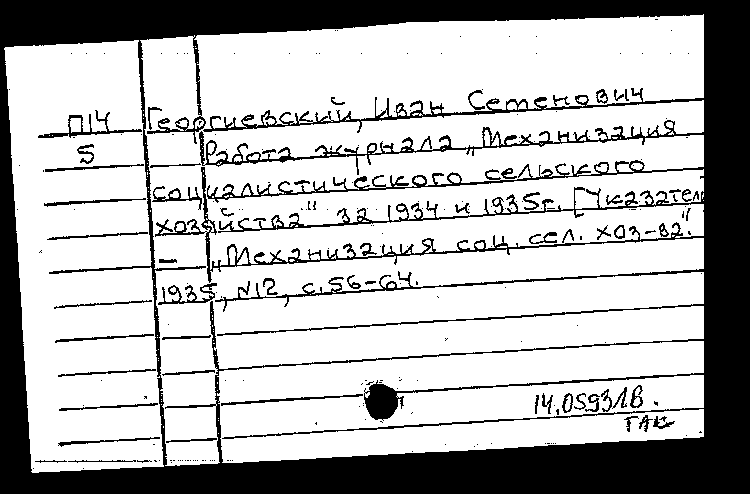 П14 Георгиевский, Иван Семенович
5 Работа журнала „Механизация
социалистического сельского
хозяйства" за 1934 и 1935г. [Указатель
– „Механизация соц. сел. хоз-ва".
1935, №12, с.56-64.
14.05.931В.
ГАК